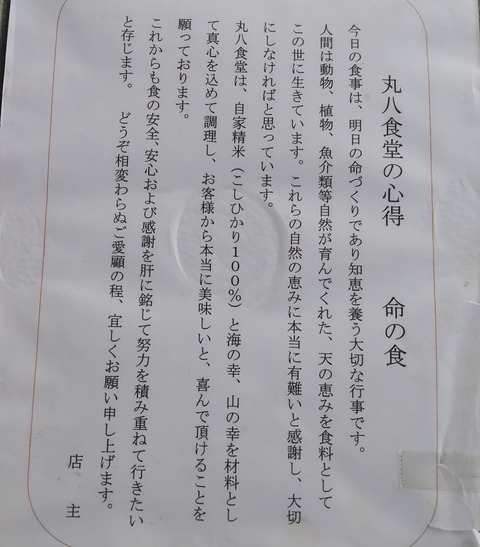 丸八食堂の心得　命の食
今日の食事は、明日の命づくりであり知恵を養う大切な行事です。
人間は動物、植物、魚介類等自然が育んでくれた、天の恵みを食料として
この世に生きています。これらの自然の恵みに本当に有難いと感謝し、大切
にしなければと思っています。
丸八食堂は、自家精米（こしひかり１００％）と海の幸、山の幸を材料とし
て真心を込めて調理し、お客様から本当に美味しいと、喜んで頂けることを
願っております。
これからも食の安全、安心および感謝を肝に銘じて努力を積み重ねて行きたい
と存じます。　どうぞ相変わらぬご愛顧の程、宜しくお願い申し上げます。
店　主